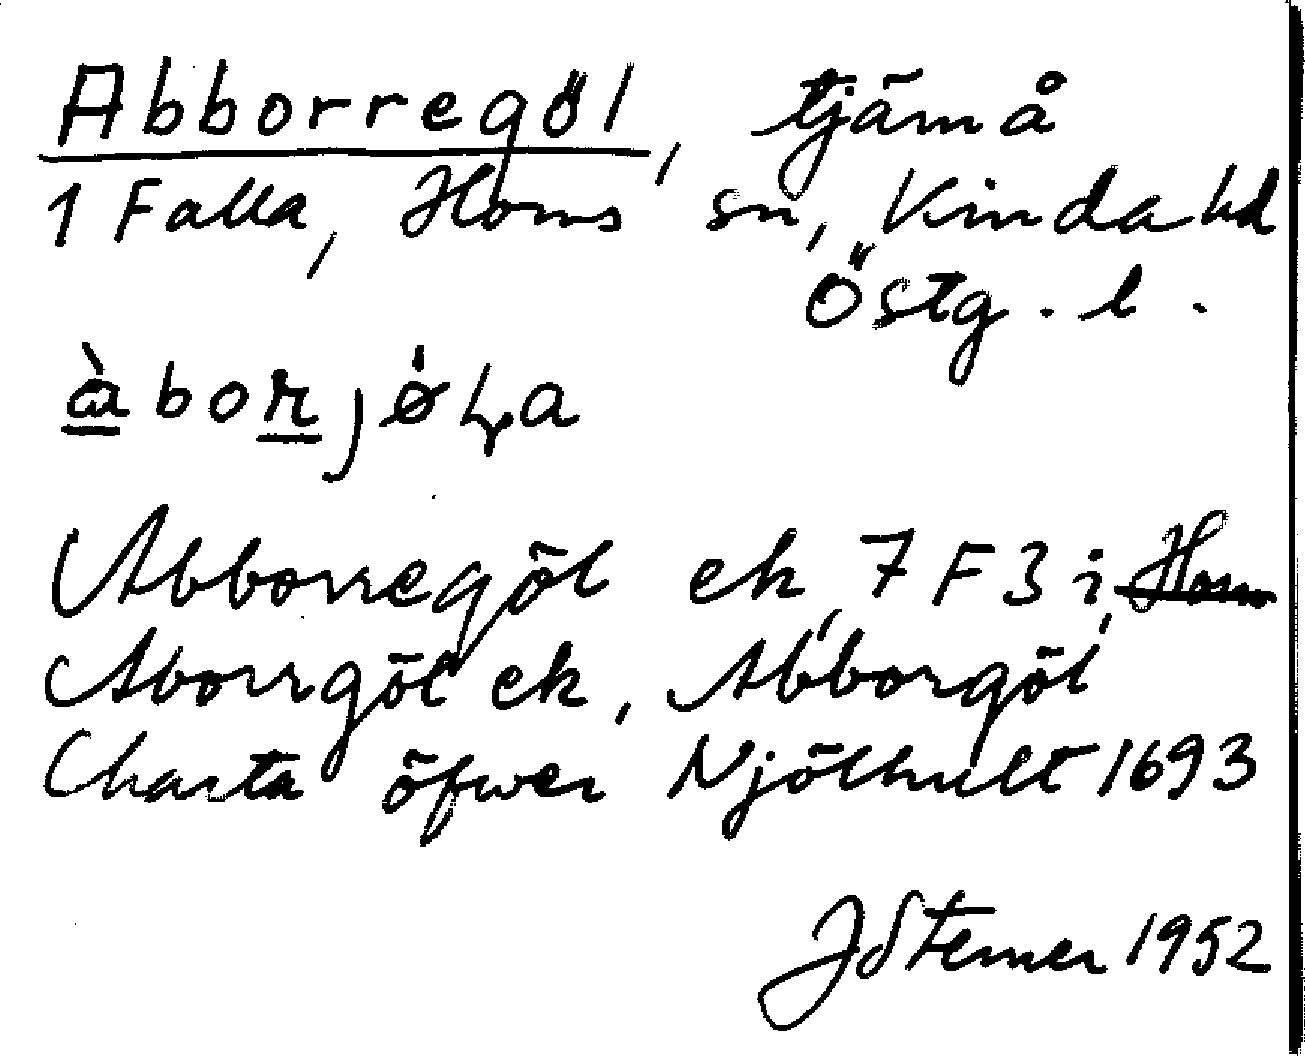 Abborregöl, tjärn å
1 Falla, Horns sn, Kinda hd
Östg. l.
àborjøla
Abborregöl ek, 7 F 3 i, Horn
Aborrgöl ek, Abborgöl
Charta öfwer Njölhult 1693
1952